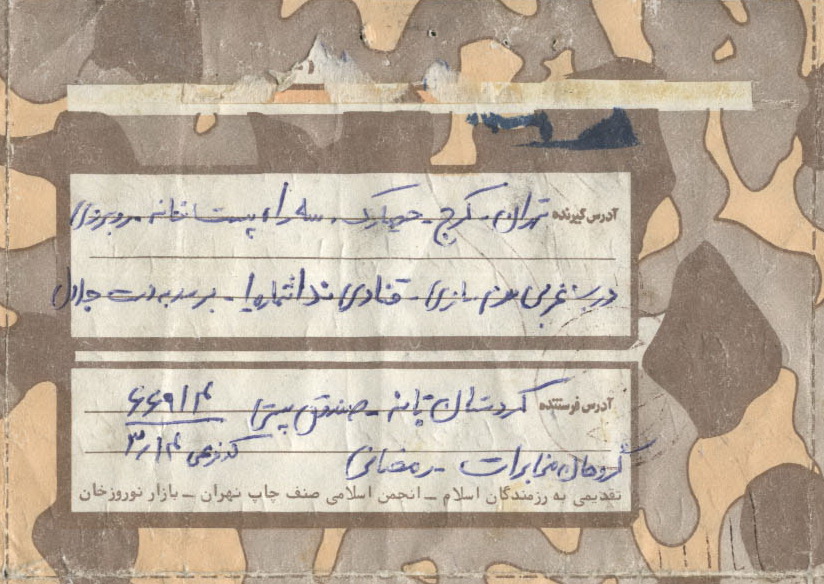 آدرس گیرنده تهران - کرج - حصارک - سه راه پستخانه - روبروی
درب غربی سرم سازی - قنادی ندا - برسد بدست جلال
آدرس فرستنده کردستان بانه - صندوق پستی ۶۶۹/۴
گروهان مخابرات - رمضانی کد فرعی ۳/۴
تقدیمی به رزمندگان اسلام ــ انجمن اسلامی صنف چاپ تهران ــ بازار نوروزخان